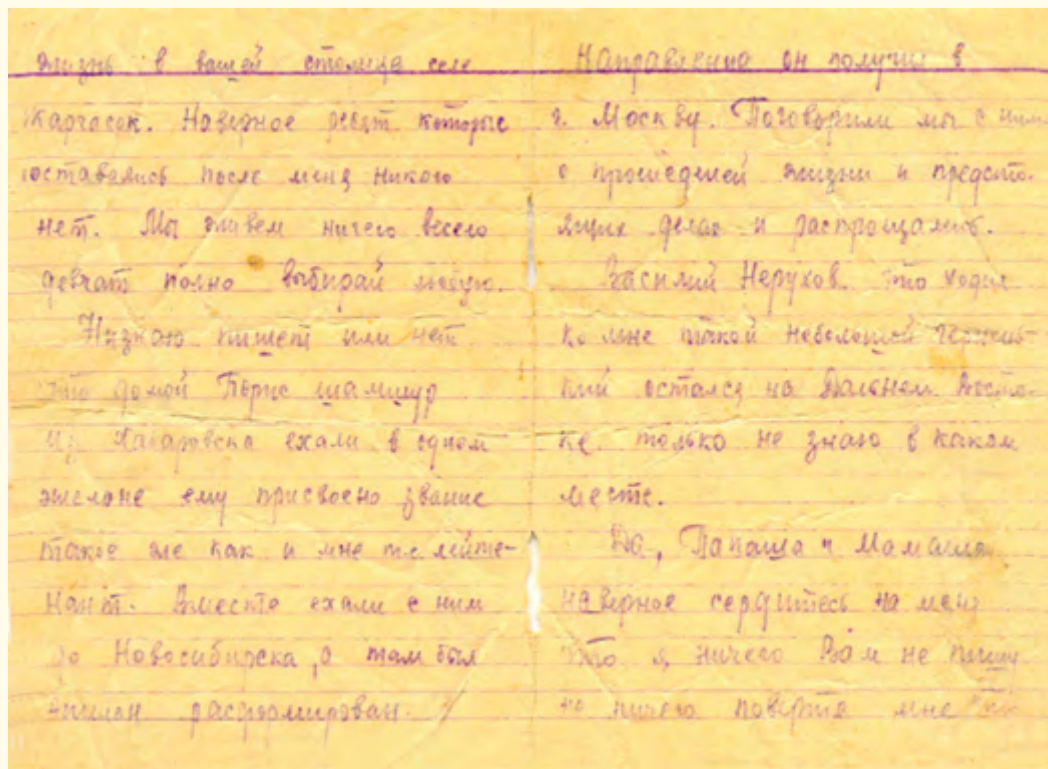 жизнь в вашей столице селе
Каргасок. Наверное ребят которые
оставались после меня никого
нет. Мы живем ничего весело
девчат полно выбирай любую.
Незнаю пишет или нет
что домой Борис шамшур
из Хабаровска ехали в одном
эшелоне ему присвоено звание
такое же как и мне т.е. лейте-
нант. Вместе ехали с ним
до Новосибирска, а там был
эшилон расформирован.
Направление он получил в
г. Москву. Поговорили мы с ним
о прошедшей жизни и предсто-
ящих делах и распрощались.
Василий Нерухов. что ходил
ко мне такой небольшой
остался на Дальнем Восто-
ке только не знаю в каком
месте.
Да, Папаша и Мамаша
наверное сердитесь на меня
что я ничего Вам не пишу
но ничего поверте мне что